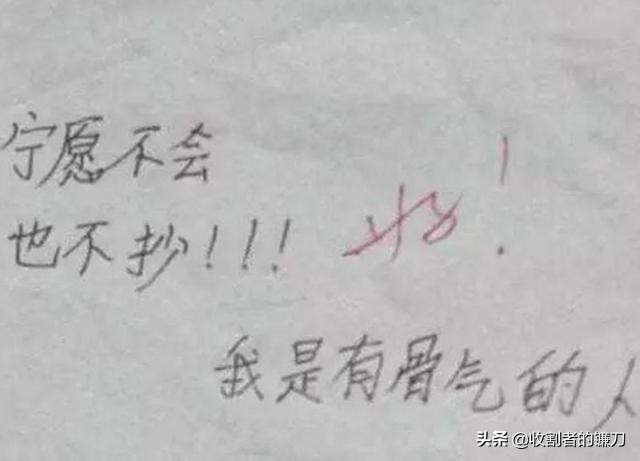 宁愿不会
也不抄!!!
好!
我是有骨气的人
头条 @收割者的镰刀